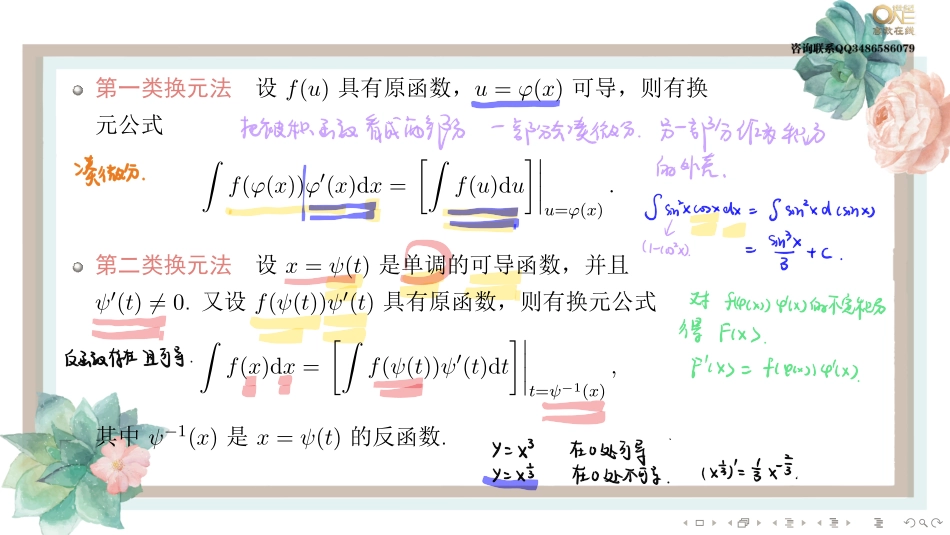 ONE
高数在线
咨询联系QQ3486586079
第一类换元法 设 f(u) 具有原函数，u = φ(x) 可导，则有换
元公式
把被积函数看成两部分 一部分会凑微分. 另一部分作为积分
的外壳.
凑微分.
∫ f(φ(x))φ′(x)dx = [∫ f(u)du]|u=φ(x) .
∫ sin²x cosx dx = ∫ sin²x d(sinx)
(1-cos²x).
= sin³x/3 + C.
第二类换元法 设 x = ψ(t) 是单调的可导函数，并且
ψ′(t) ≠ 0. 又设 f(ψ(t))ψ′(t) 具有原函数，则有换元公式
对 f(φ(x)) φ′(x)的不定积分
得 F(x).
反函数存在且可导.
∫ f(x)dx = [∫ f(ψ(t))ψ′(t)dt]|t=ψ⁻¹(x) ,
F′(x) = f(φ(x)) φ′(x).
其中 ψ⁻¹(x) 是 x = ψ(t) 的反函数.
y=x³ 在0处可导
y=x^(1/3) 在0处不可导. (x^(1/3))′ = 1/3 x^(-2/3).